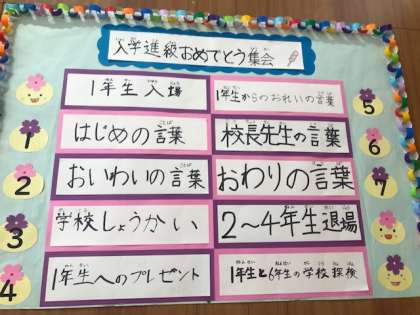 入学進級おめでとう集会
1年生入場
1 はじめの言葉
2 おいわいの言葉
3 学校しょうかい
4 1年生へのプレゼント
5 1年生からのおれいの言葉
6 校長先生の言葉
7 おわりの言葉
2〜4年生退場
1年生と6年生の学校探検